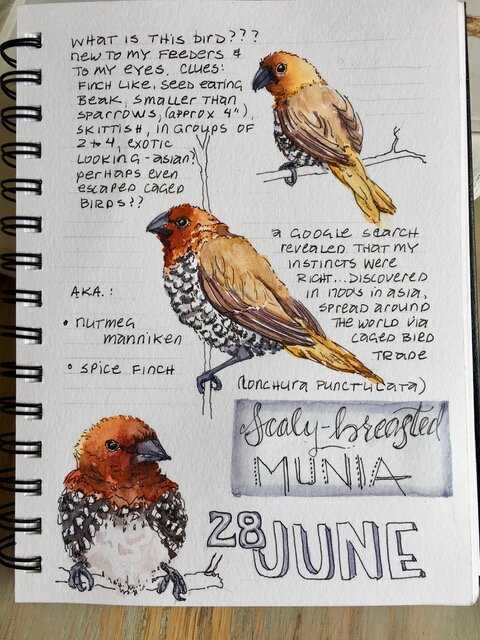 WHAT IS THIS BIRD???
NEW TO MY FEEDERS &
TO MY EYES. CLUES:
FINCH LIKE, SEED EATING
BEAK, SMALLER THAN
SPARROWS, (APPROX 4"),
SKITTISH, IN GROUPS OF
2 + 4, EXOTIC
LOOKING - ASIAN?
PERHAPS EVEN
ESCAPED CAGED
BIRDS??
A GOOGLE SEARCH
REVEALED THAT MY
INSTINCTS WERE
RIGHT... DISCOVERED
IN 1700'S IN ASIA,
SPREAD AROUND
THE WORLD VIA
CAGED BIRD
TRADE
AKA.:
• NUTMEG
MANNIKEN
• SPICE FINCH
(LONCHURA PUNCTULATA)
Scaly-breasted
MUNIA
28 JUNE